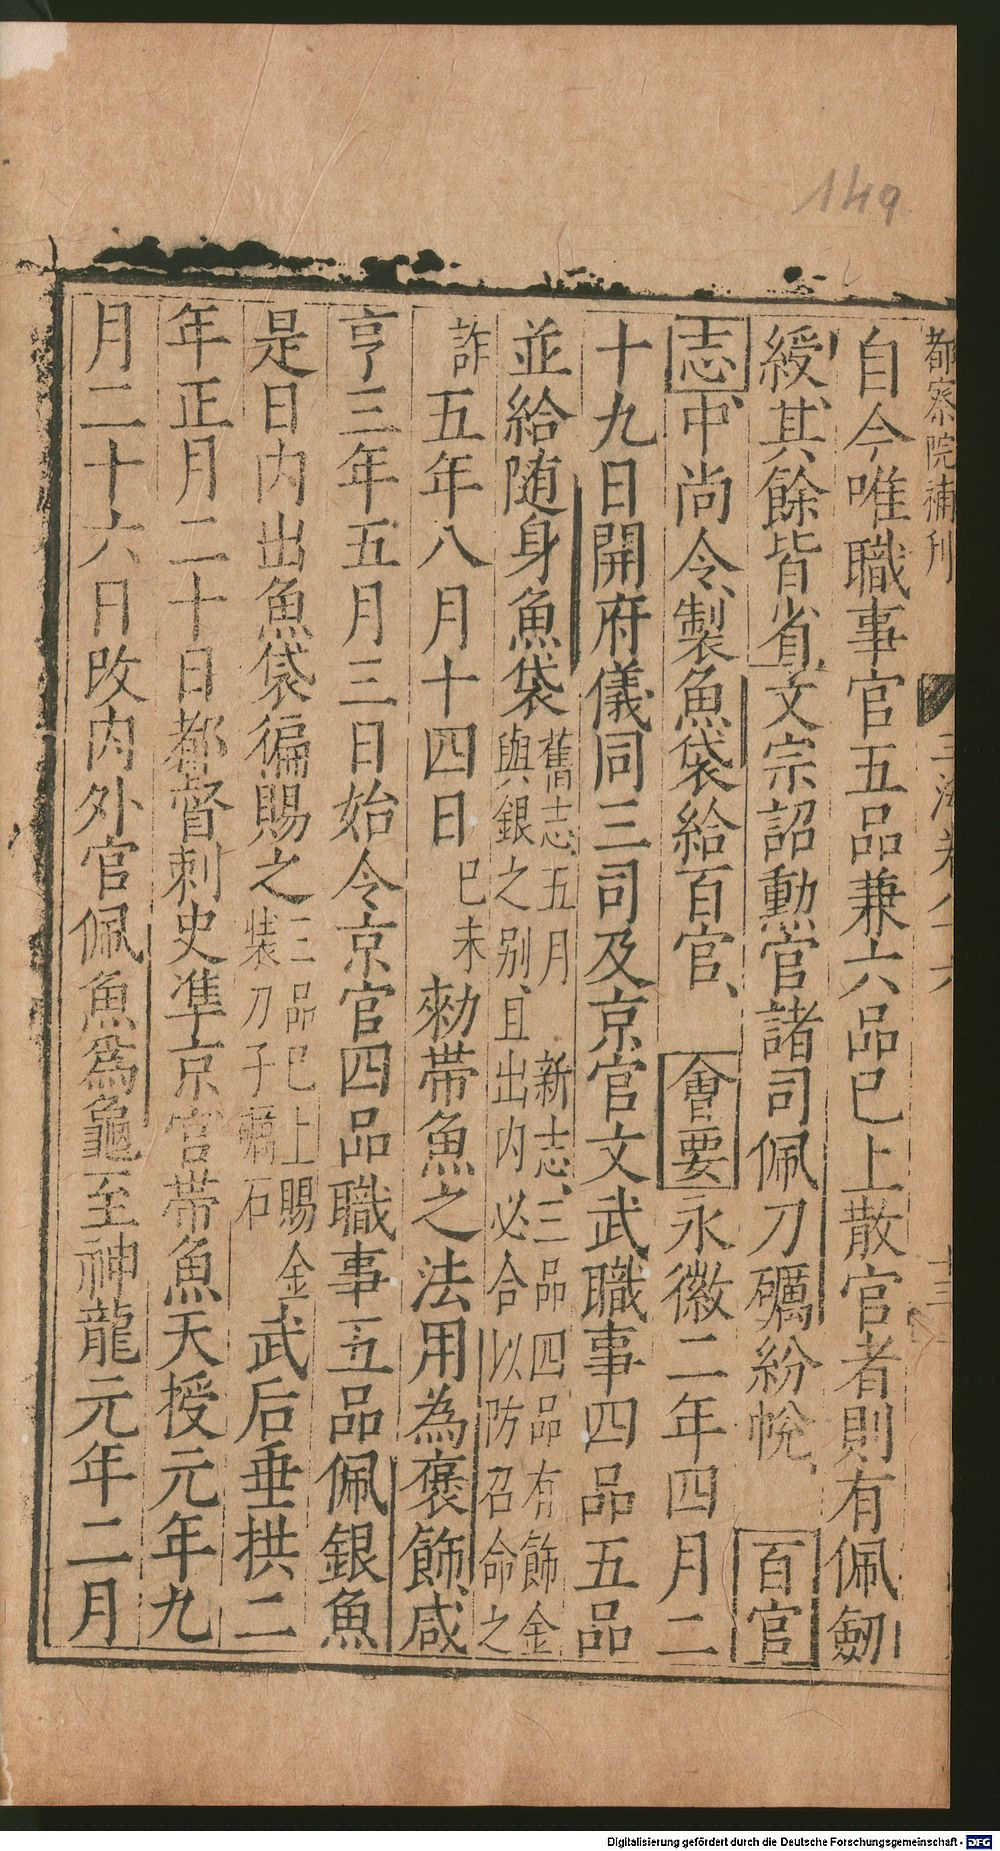 149
都察院補刋
自今唯職事官五品兼六品已上散官者則有佩劒
綬其餘皆省文宗詔勳官諸司佩刀礪紛帨百官
志中尚令製魚袋給百官會要永徽二年四月二
十九日開府儀同三司及京官文武職事四品五品
並給随身魚袋舊志五月新志三品四品有飾金
與銀之别且出内必合以防召命之
詐五年八月十四日己未勑帶魚之法用為褒飾咸
亨三年五月三日始令京官四品職事五品佩銀魚
是日内出魚袋徧賜之三品已上賜金
裝刀子礪石武后垂拱二
年正月二十日都督刺史準京官帶魚天授元年九
月二十六日改内外官佩魚為龜至神龍元年二月
Digitalisierung gefördert durch die Deutsche Forschungsgemeinschaft - DFG